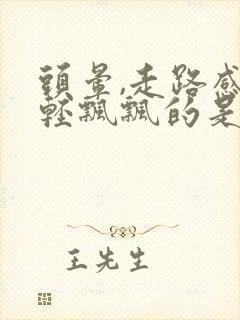 頭暈,走路感
輕飄飄的是
王先生